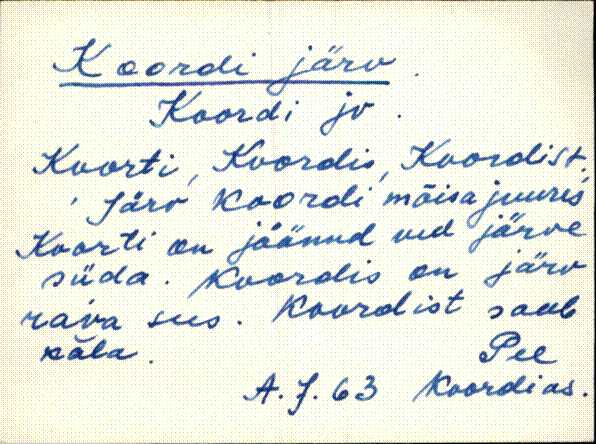 Koordi järv.
Koordi jv.
Koorti, Koordis, Koordist.
Järv Koordi mõisa juures
Koorti on jäänud ved järve
süda. Koordis on järv
rava sees. Koordist saab
kala. Pee
A.J. 63 Koordi as.